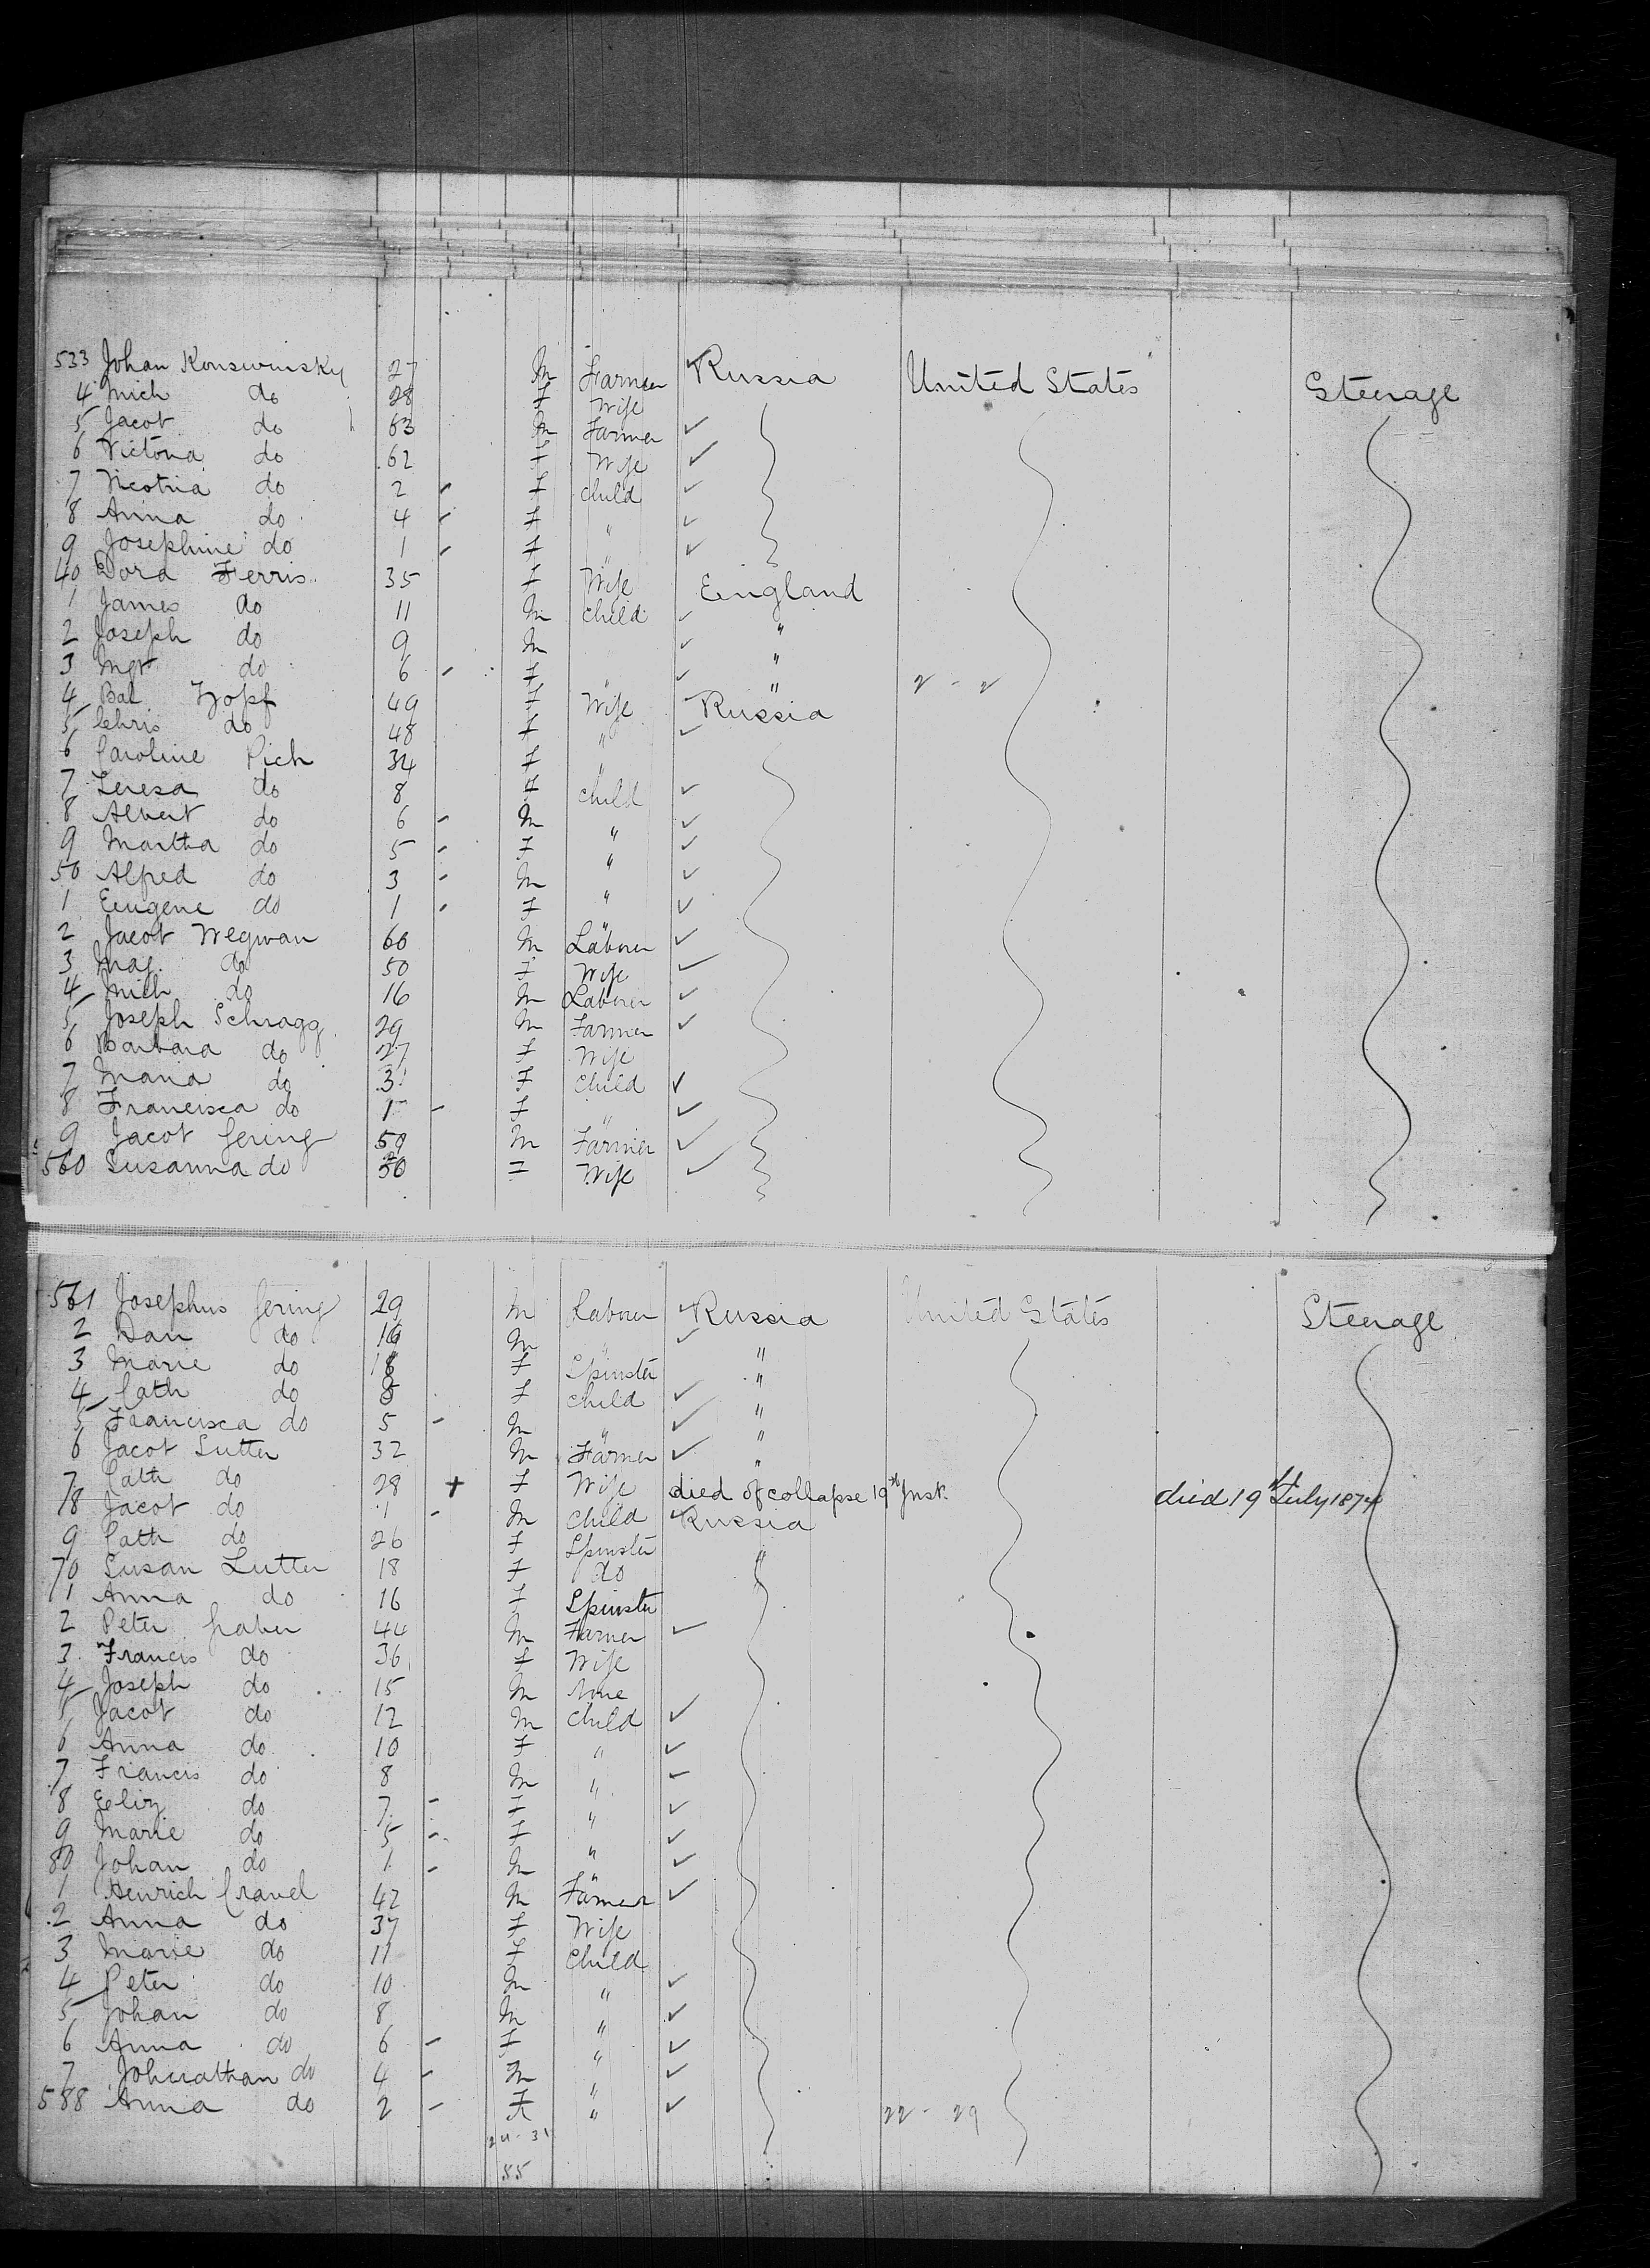 533 Johan Konswinsky 27 M Farmer Russia United States Steerage
4 Mich do 28 F Wife
5 Jacob do 63 M Farmer
6 Victoria do 62 F Wife
7 Vicotria do 2 F Child
8 Anna do 4 F "
9 Josephine do 1 F "
40 Dora Ferris 35 F Wife England
1 James do 11 M Child "
2 Joseph do 9 M "
3 Mgt do 6 F " "
4 Bal Zopf 49 F Wife Russia
5 Chris do 48 F "
6 Caroline Pich 34 F "
7 Teresa do 8 F Child
8 Albert do 6 M "
9 Martha do 5 F "
50 Alfred do 3 M "
1 Eugene do 1 F "
2 Jacob Wegman 60 M Laborer
3 Mag. do 50 F Wife
4 Mich do 16 M Laborer
5 Joseph Schragg 29 M Farmer
6 Barbara do 27 F Wife
7 Maria do 3 F Child
8 Francisca do 1 F "
9 Jacob Gering 59 M Farmer
560 Susanna do 50 F Wife
561 Josephus Gering 29 M Laborer Russia United States Steerage
2 Dan do 16 M " "
3 Marie do 18 F Spinster "
4 Cath do 8 F Child "
5 Francisca do 5 M " "
6 Jacob Sutter 32 M Farmer "
7 Cath do 28 + F Wife died of collapse 19th Inst. died 19th July 1874
8 Jacob do 1 M Child Russia
9 Cath do 26 F Spinster "
70 Susan Sutter 18 F do "
1 Anna do 16 F Spinster
2 Peter Graber 44 M Farmer
3 Francis do 36 F Wife
4 Joseph do 15 M None
5 Jacob do 12 M Child
6 Anna do 10 F "
7 Francis do 8 M "
8 Eliz do 7 F "
9 Marie do 5 F "
80 Johan do 1 M "
1 Henrich Gravel 42 M Farmer
2 Anna do 37 F Wife
3 Marie do 11 F Child
4 Peter do 10 M "
5 Johan do 8 M "
6 Anna do 6 F "
7 Johnathan do 4 M "
588 Anna do 2 F " 22 - 29
24 - 31
55